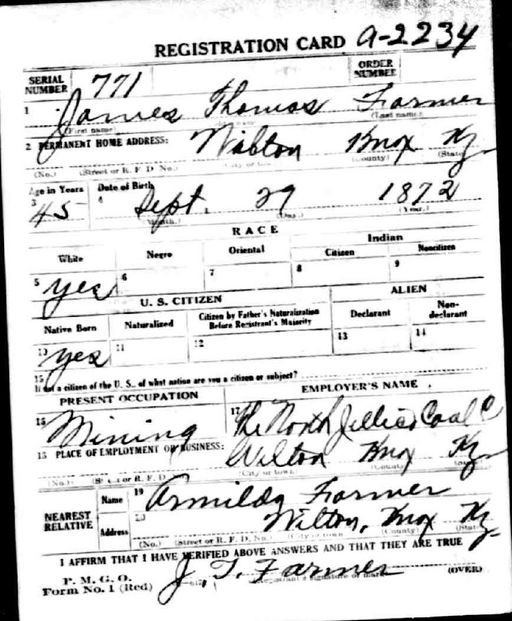 REGISTRATION CARD A-2234
SERIAL NUMBER 771 ORDER NUMBER
1 James Thomas Farmer
(First name) (Last name)
2 PERMANENT HOME ADDRESS: Wilton Knox Ky
(No.) (Street or R. F. D. No.) (City or town) (County) (State)
Age in Years Date of Birth
3 45 4 Sept. 29 1872
(Month.) (Day.) (Year.)
RACE
White Negro Oriental Indian
Citizen Noncitizen
5 yes 6 7 8 9
U. S. CITIZEN ALIEN
Native Born Naturalized Citizen by Father's Naturalization Before Registrant's Majority Declarant Non-declarant
10 yes 11 12 13 14
15 If not a citizen of the U. S., of what nation are you a citizen or subject?
PRESENT OCCUPATION EMPLOYER'S NAME
16 Mining 17 The North Jellico Coal C
18 PLACE OF EMPLOYMENT OR BUSINESS: Wilton Knox Ky
(No.) (Street or R. F. D. (City or town) (County)
NEAREST RELATIVE Name 19 Armilda Farmer
Address 20 Wilton, Knox Ky
(No.) (Street or R. F. D. No.) (City or town) (County) (State)
I AFFIRM THAT I HAVE VERIFIED ABOVE ANSWERS AND THAT THEY ARE TRUE
P. M. G. O.
Form No. 1 (Red) J. T. Farmer (OVER)
(Registrant's signature or mark)